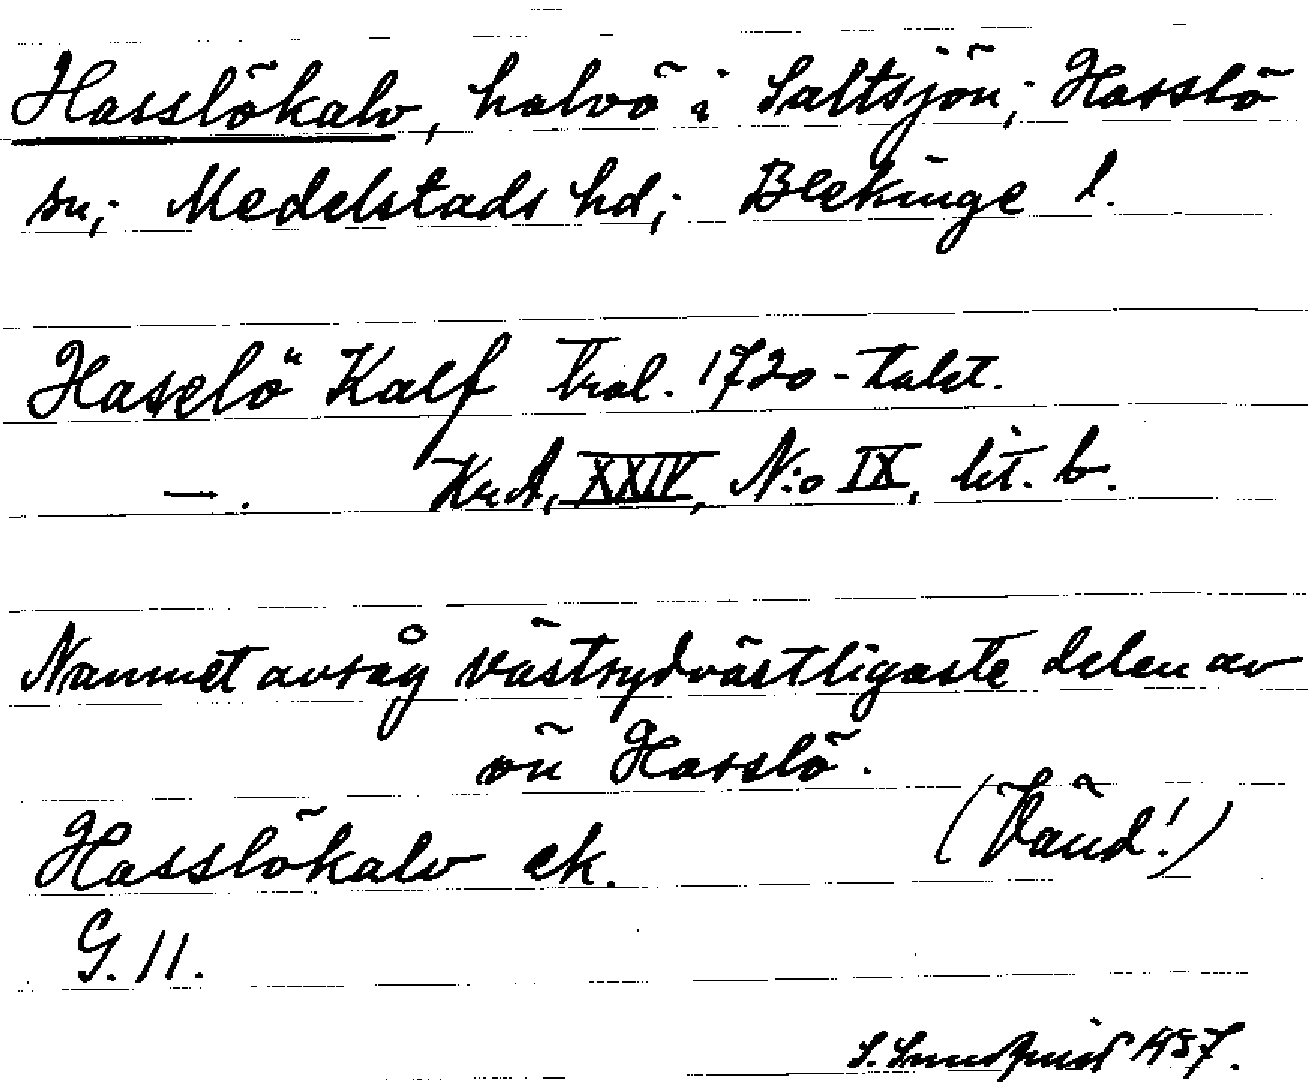 Hasslökalv, halvö i Saltsjön; Hasslö
sn; Medelstads hd; Blekinge l.
Haselö Kalf trol. 1720-talet.
—. KrA, XXIV, N:o IX, lit. b.
Namnet avsåg västsydvästligaste delen av
ön Hasslö.
(Vänd!)
Hasslökalv ek.
G. 11.
S. 1957.